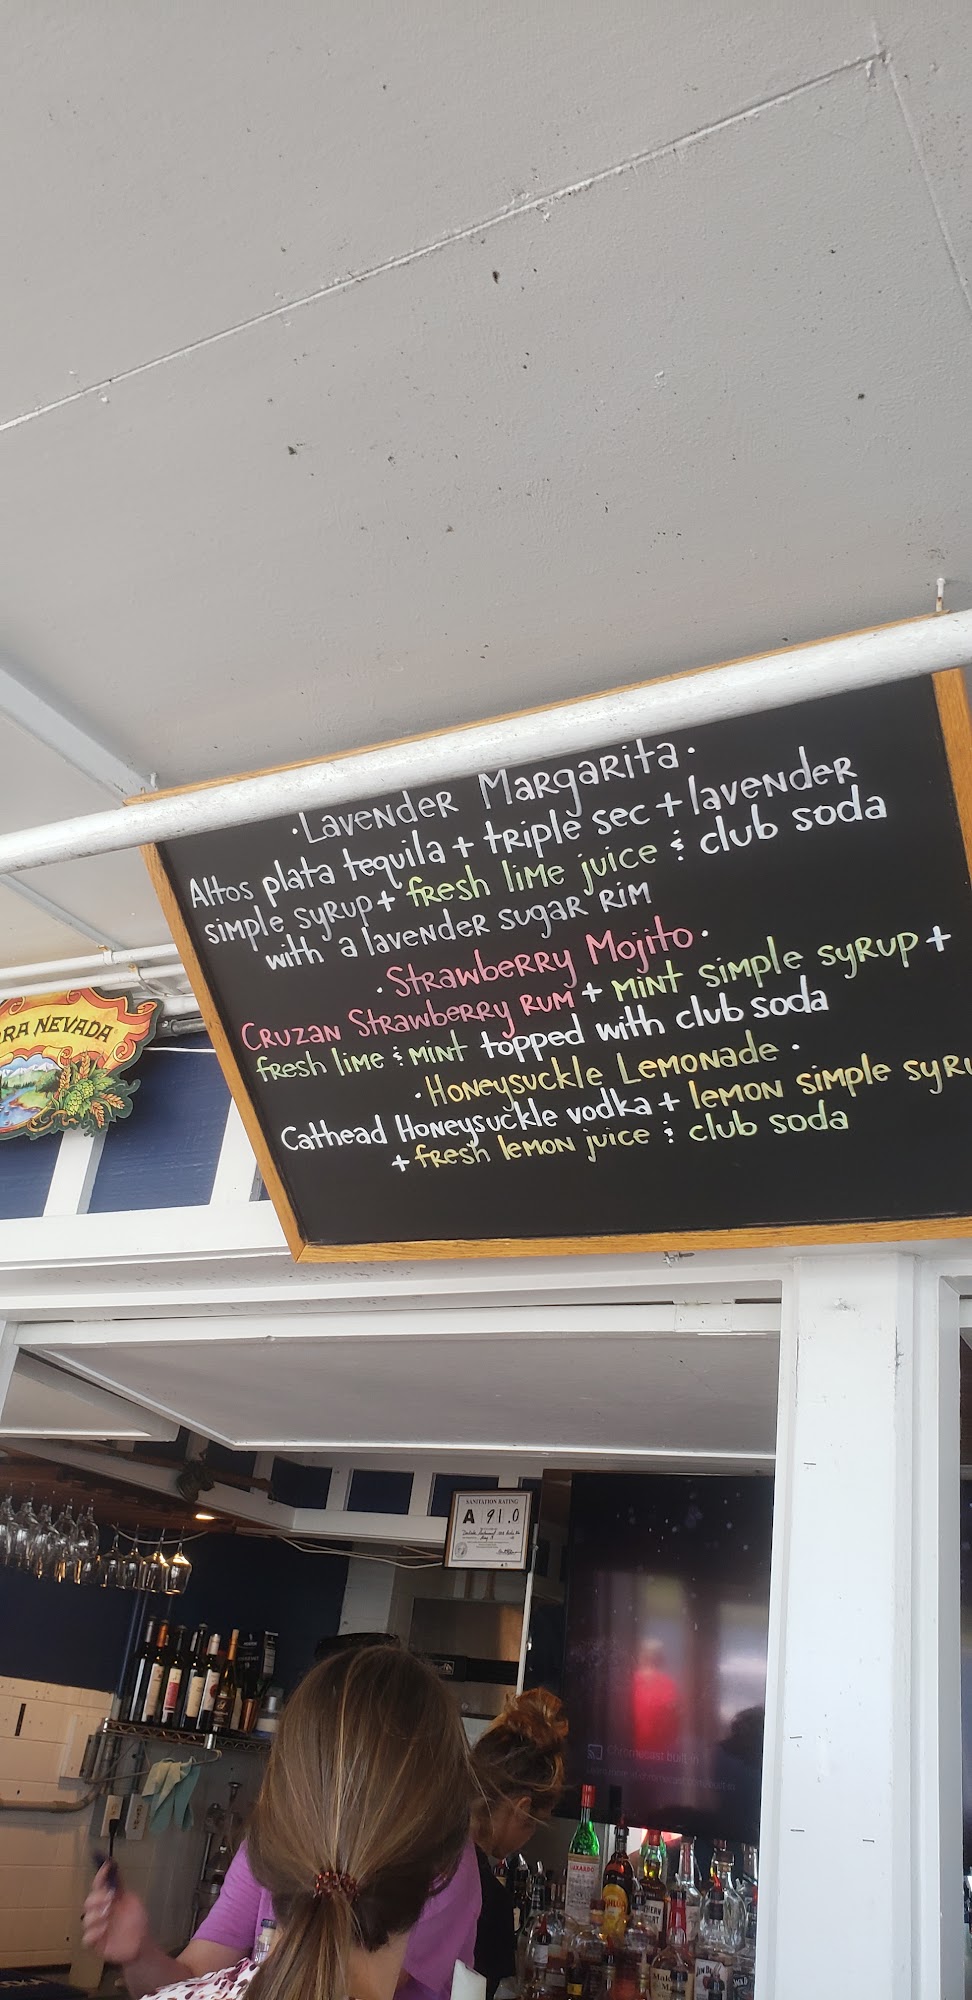 ·Lavender Margarita·
Altos plata tequila + triple sec + lavender
simple syrup + fresh lime juice & club soda
with a lavender sugar rim
·Strawberry Mojito·
Cruzan Strawberry rum + mint simple syrup +
fresh lime & mint topped with club soda
·Honeysuckle Lemonade·
Cathead Honeysuckle vodka + lemon simple syru
+ fresh lemon juice & club soda
RA NEVADA
SANITATION RATING
A 91.0
Chromecast built-in